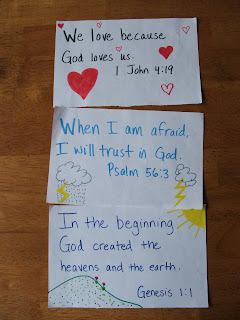 We love because
God loves us.
1 John 4:19
When I am afraid,
I will trust in God.
Psalm 56:3
In the beginning
God created the
heavens and the earth.
Genesis 1:1